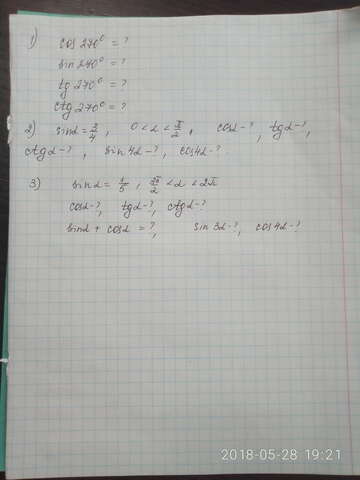 1)
cos 270° = ?
sin 270° = ?
tg 270° = ?
ctg 270° = ?
2) sinα = 3/4, 0 < α < π/2, cosα - ?, tgα - ?,
ctgα - ?, sin 4α - ?, cos4α - ?
3) sinα = 1/5, 3π/2 < α < 2π
cosα - ?, tgα - ?, ctgα - ?
sinα + cosα = ?, sin 3α - ?, cos4α - ?
2018-05-28 19:21